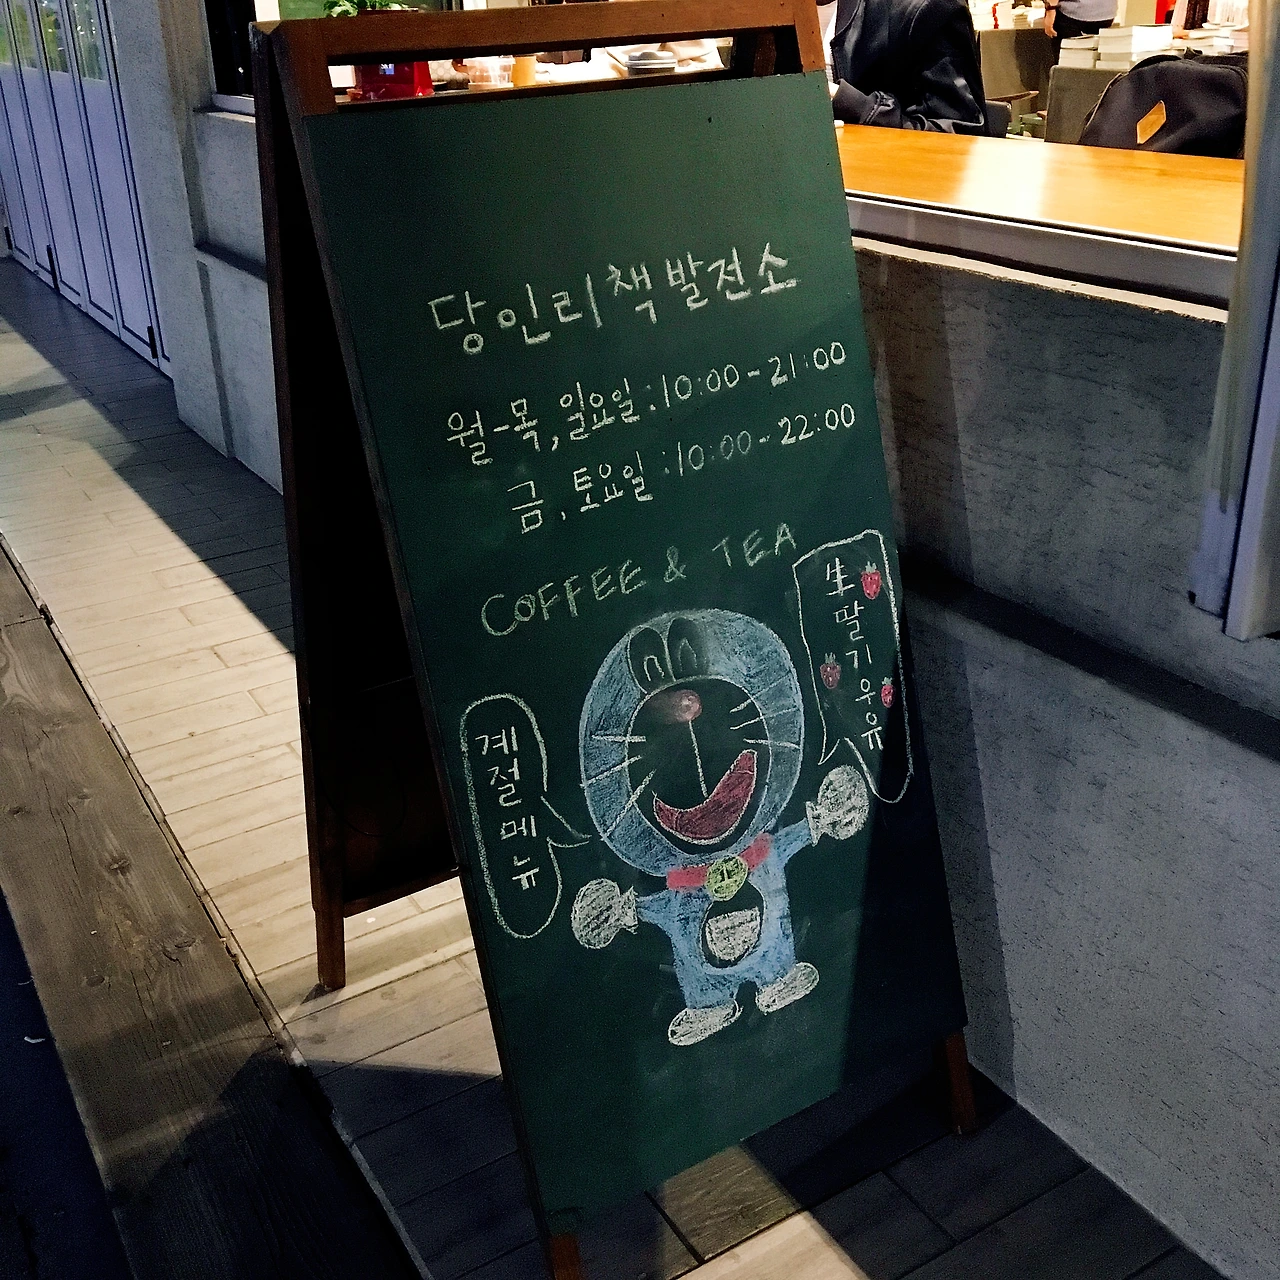 당인리책발전소
월-목, 일요일 : 10:00 - 21:00
금, 토요일 : 10:00 - 22:00
COFFEE & TEA
계절메뉴
生딸기우유